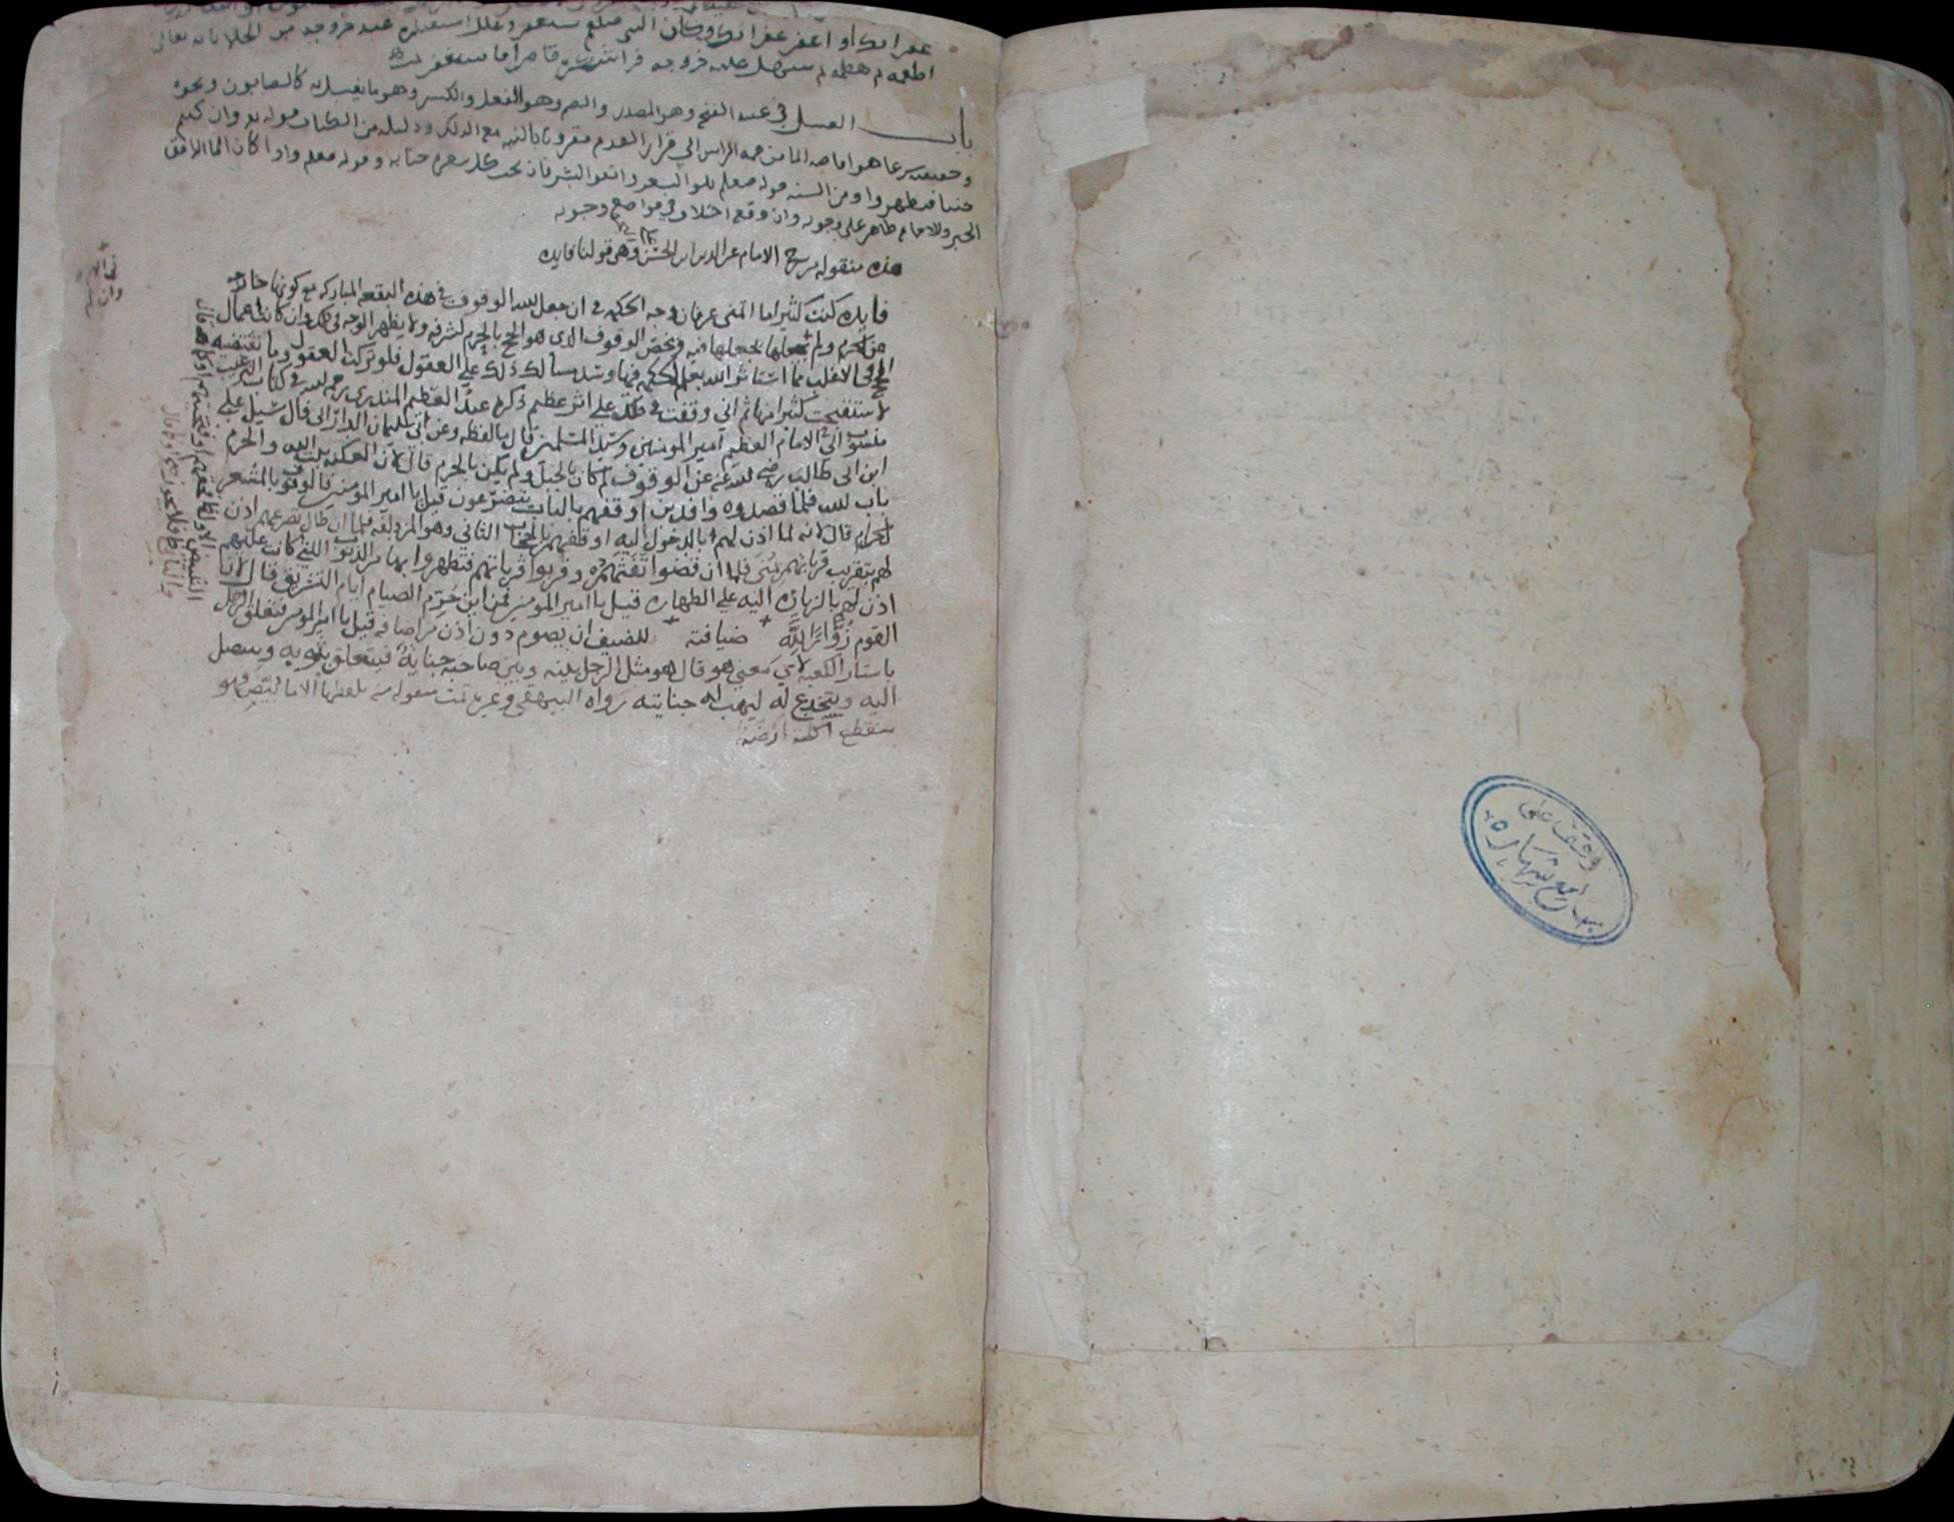 غفرانك او اغفر غفرانك وكان النبي صلعم يستغفر وعلل استغفاره عند خروجه من الخلا بانه تعالى
اطعمه ثم هضمه ثم سهل عليه خروجه فراى شكره قاصرا فاستغفر
باب الغسل في عينه الفتح وهو المصدر والضم وهو الفعل والكسر وهو ما يغسل به كالصابون ونحوه
وحقيقته شرعا هو افاضة الما من قمة الراس الى قرار القدم مقرونا بالنيه مع الدلك ودليله من الكتاب قوله تع وان كنتم
جنبا فاطهروا ومن السنه قوله صلعم بلوا الشعر وانقوا البشر فان تحت كل شعرة جنابه وقوله صلعم واذا كان الما الدافق
الخبر والاجماع ظاهر على وجوبه وان وقع اختلاف في مواضع وجوبه
هذه منقوله من شرح الامام عز الدين بن الحسن وهي قولنا فايده
فايده كنت كثيرا ما اتمنى عرفان وجه الحكمه في ان جعل الله الوقوف في هذه البقعه المباركه مع كونها خارجه
عن الحرم ولم يجعلها فيه ويخص الوقوف الذي هو الحج بالحرم لشرفه ولا يظهر الوجه في ذلك وان كانت اعمال
الحج في الاغلب مما استاثر الله بعلم الحكمه فيها وسد مسالك ذلك على العقول فلو تركت العقول وما تقتضيه
لاستقبحت كثيرا منها ثم اني وقفت في ذلك على اثر عظيم ذكره عبد العظيم المنذري رحمه الله في كتاب الترغيب
منسوب الى الامام العظيم امير المومنين وسيد المسلمين قال ما لفظه وعن ابي سليمان الداراني قال سئل علي
ابن ابي طالب رضي الله عنه عن الوقوف لم كان بالجبل ولم يكن بالحرم قال لان الكعبه بيت الله والحرم
باب الله فلما قصدوه وافدين اوقفهم بالباب يتضرعون قيل يا امير المومنين فالوقوف بالمشعر
الحرام قال لانه لما اذن لهم بالدخول اليه اوقفهم بالحجاب الثاني وهو المزدلفه فلما ان طال تضرعهم اذن
لهم بتقريب قربانهم بمنى فلما ان قضوا تفثهم وقربوا قربانهم فتطهروا بها من الذنوب التي كانت عليهم
اذن لهم بالزياره اليه على الطهاره قيل يا امير المومنين فمن اين حرم الصيام ايام التشريق قال لان
القوم زوار الله ضيافته للضيف ان يصوم دون اذن من اضافه قيل يا امير المومنين فتعلق الرجل
باستار الكعبه لاي معنى هو قال هو مثل الرجل بينه وبين صاحبه جنايه فيتعلق بثوبه ويتنصل
اليه ويتخدع له ليهب له جنايته رواه البيهقي وغيره تمت منقوله منه بلفظها الا ما
منقطع
وقف على
جامع شهاره